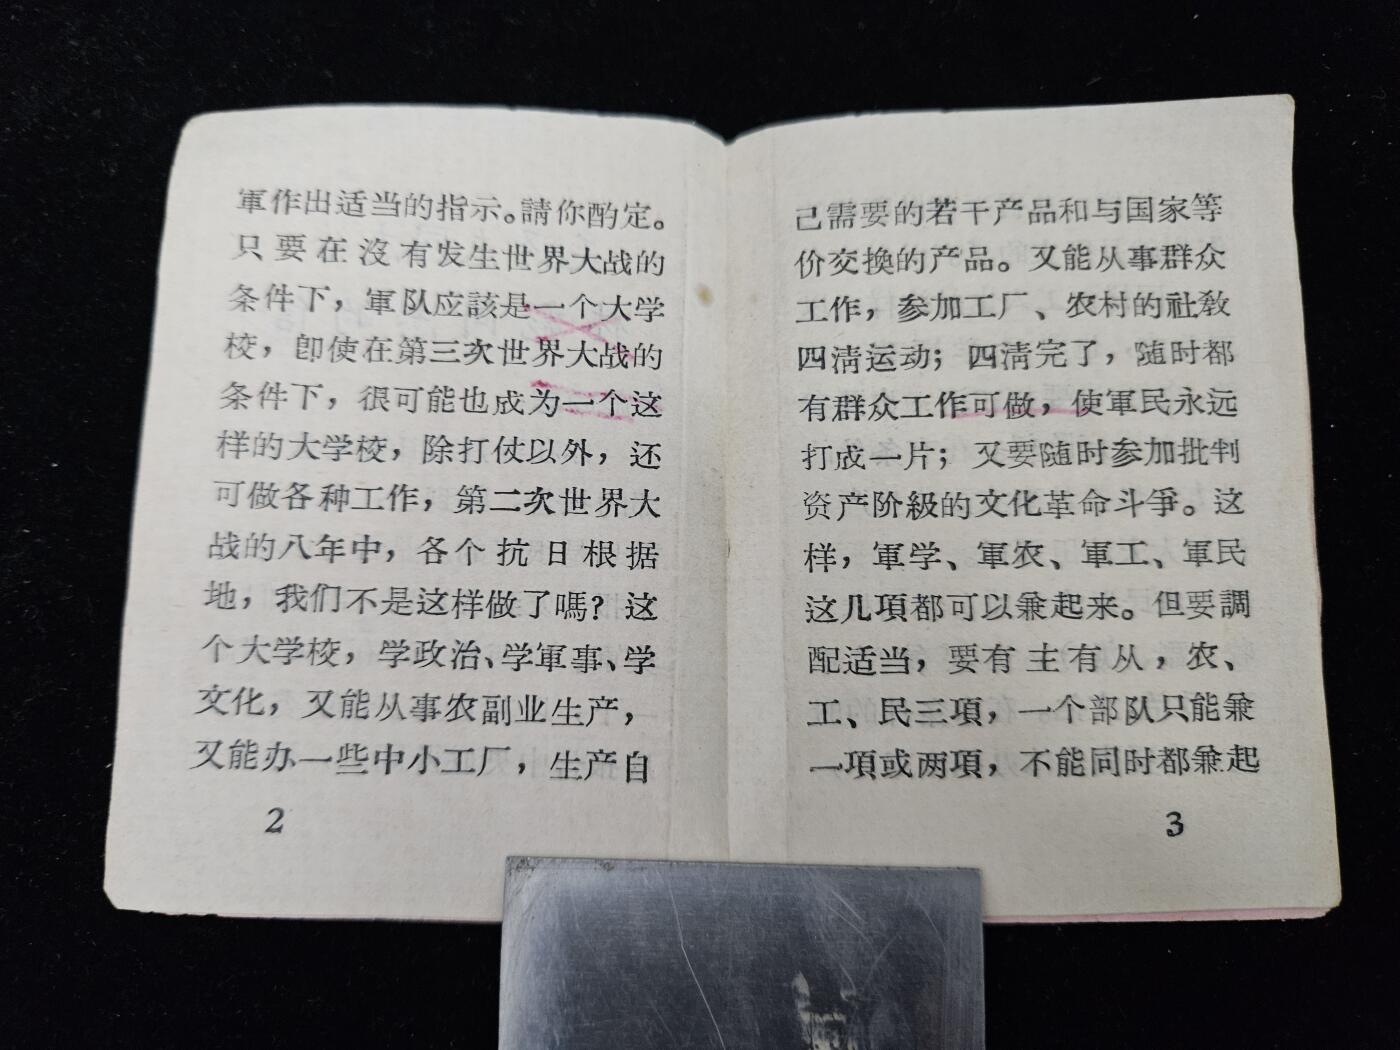 軍作出适当的指示。請你酌定。
只要在沒有发生世界大战的
条件下，軍队应該是一个大学
校，卽使在第三次世界大战的
条件下，很可能也成为一个这
样的大学校，除打仗以外，还
可做各种工作，第二次世界大
战的八年中，各个抗日根据
地，我们不是这样做了嗎？这
个大学校，学政治、学軍事、学
文化，又能从事农副业生产，
又能办一些中小工厂，生产自
2
己需要的若干产品和与国家等
价交換的产品。又能从事群众
工作，参加工厂、农村的社敎
四淸运动；四淸完了，随时都
有群众工作可做，使軍民永远
打成一片；又要随时参加批判
资产阶級的文化革命斗爭。这
样，軍学、軍农、軍工、軍民
这几項都可以兼起来。但要調
配适当，要有主有从，农、
工、民三項，一个部队只能兼
一項或两項，不能同时都兼起
3